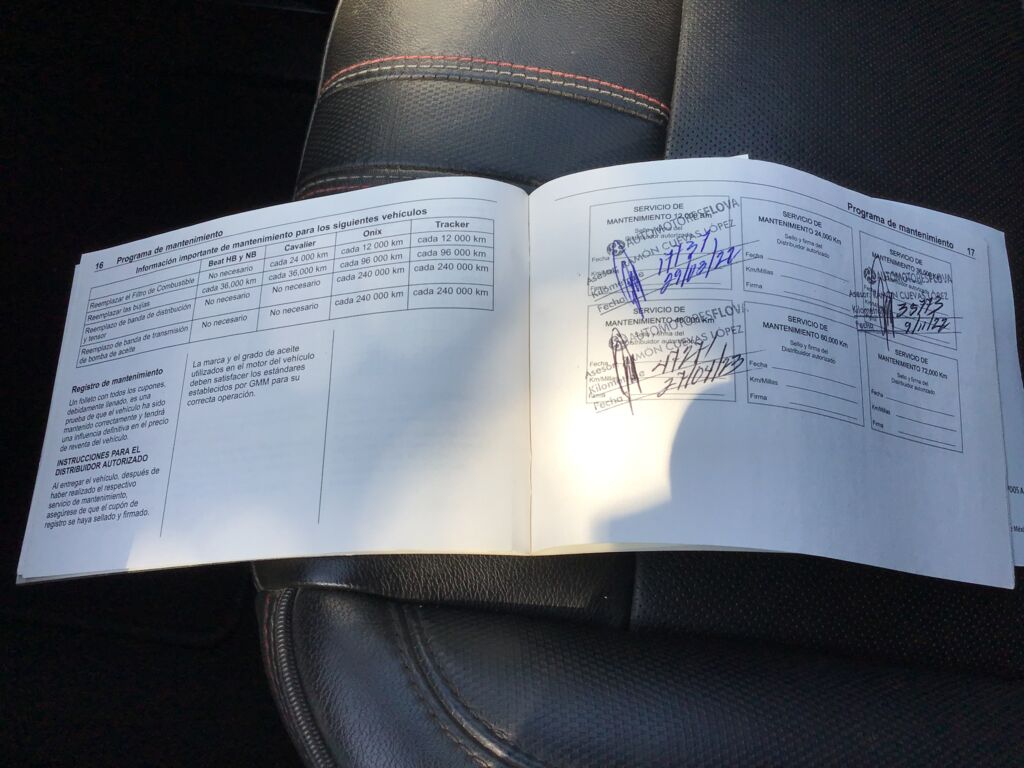 16 Programa de mantenimiento
Información importante de mantenimiento para los siguientes vehículos
Beat HB y NB Cavalier Onix Tracker
Reemplazar el Filtro de Combustible No necesario cada 24 000 km cada 12 000 km cada 12 000 km
Reemplazar las bujías cada 36,000 km cada 36,000 km cada 96 000 km cada 96 000 km
Reemplazo de banda de distribución y tensor No necesario No necesario cada 240 000 km cada 240 000 km
Reemplazo de banda de transmisión de bomba de aceite No necesario No necesario cada 240 000 km cada 240 000 km
Registro de mantenimiento
Un folleto con todos los cupones,
debidamente llenado, es una
prueba de que el vehículo ha sido
mantenido correctamente y tendrá
una influencia definitiva en el precio
de reventa del vehículo.
INSTRUCCIONES PARA EL
DISTRIBUIDOR AUTORIZADO
Al entregar el vehículo, después de
haber realizado el respectivo
servicio de mantenimiento,
asegúrese de que el cupón de
registro se haya sellado y firmado.
La marca y el grado de aceite
utilizados en el motor del vehículo
deben satisfacer los estándares
establecidos por GMM para su
correcta operación.
Programa de mantenimiento 17
SERVICIO DE
MANTENIMIENTO 12,000 Km
Sello y firma del
Distribuidor autorizado
AUTOMOTORES FLOVA
RAMON CUEVAS LÓPEZ
Kilometraje
Fecha 29/03/22
SERVICIO DE
MANTENIMIENTO 24,000 Km
Sello y firma del
Distribuidor autorizado
Fecha
Km/Millas
Firma
SERVICIO DE
MANTENIMIENTO 36,000 Km
AUTOMOTORES FLOVA
Asesor RAMON CUEVAS LÓPEZ
Kilometraje
Fecha 9/11/22
SERVICIO DE
MANTENIMIENTO 48,000 Km
Sello y firma del
Distribuidor autorizado
AUTOMOTORES FLOVA
Asesor RAMON CUEVAS LÓPEZ
Kilometraje
Fecha 27/04/23
SERVICIO DE
MANTENIMIENTO 60,000 Km
Sello y firma del
Distribuidor autorizado
Fecha
Km/Millas
Firma
SERVICIO DE
MANTENIMIENTO 72,000 Km
Sello y firma del
Distribuidor autorizado
Fecha
Km/Millas
Firma